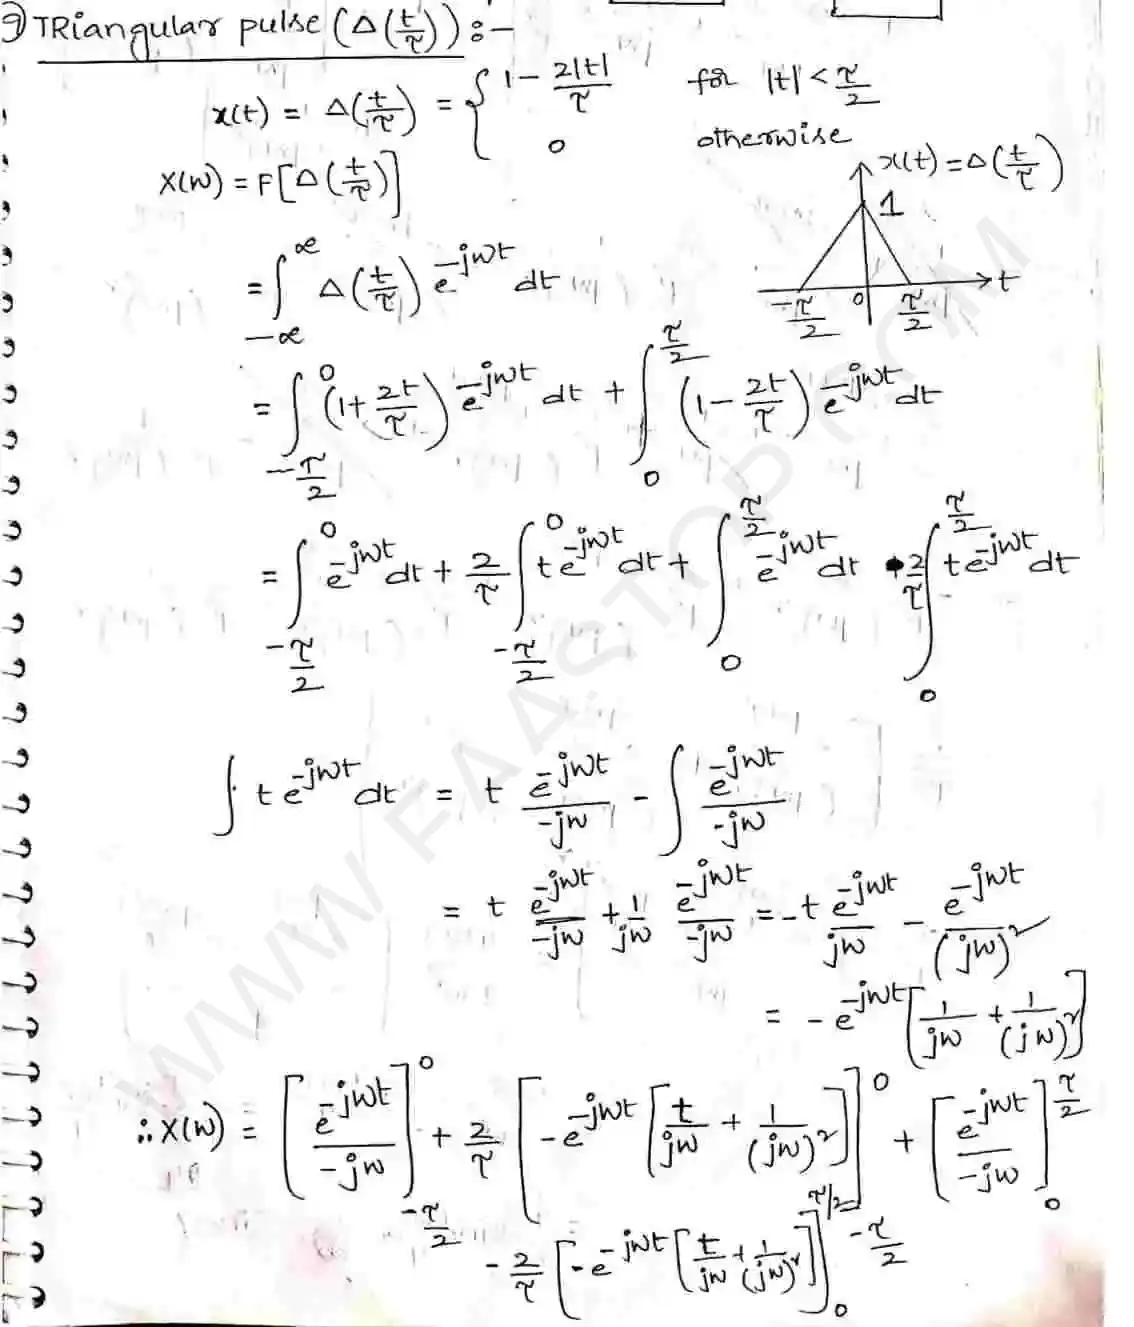 9) TRiangular pulse (Δ(t/τ)) :-
x(t) = Δ(t/τ) = { 1 - 2|t|/τ for |t| < τ/2
0 otherwise
x(t) = Δ(t/τ)
1
-τ/2 0 τ/2 t
X(w) = F[Δ(t/τ)]
= ∫_{-∞}^{∞} Δ(t/τ) e^{-jwt} dt
= ∫_{-τ/2}^{0} (1 + 2t/τ) e^{-jwt} dt + ∫_{0}^{τ/2} (1 - 2t/τ) e^{-jwt} dt
= ∫_{-τ/2}^{0} e^{-jwt} dt + 2/τ ∫_{-τ/2}^{0} t e^{-jwt} dt + ∫_{0}^{τ/2} e^{-jwt} dt - 2/τ ∫_{0}^{τ/2} t e^{-jwt} dt
∫ t e^{-jwt} dt = t e^{-jwt}/-jw - ∫ e^{-jwt}/-jw
= t e^{-jwt}/-jw + 1/jw e^{-jwt}/-jw = -t e^{-jwt}/jw - e^{-jwt}/(jw)^2
= -e^{-jwt} [1/jw + 1/(jw)^2]
∴ X(w) = [e^{-jwt}/-jw]_{-τ/2}^{0} + 2/τ [-e^{-jwt} [t/jw + 1/(jw)^2]]_{-τ/2}^{0} + [e^{-jwt}/-jw]_{0}^{τ/2}
- 2/τ [-e^{-jwt} [t/jw + 1/(jw)^2]]_{0}^{τ/2}
WWW.FAASTOP.COM